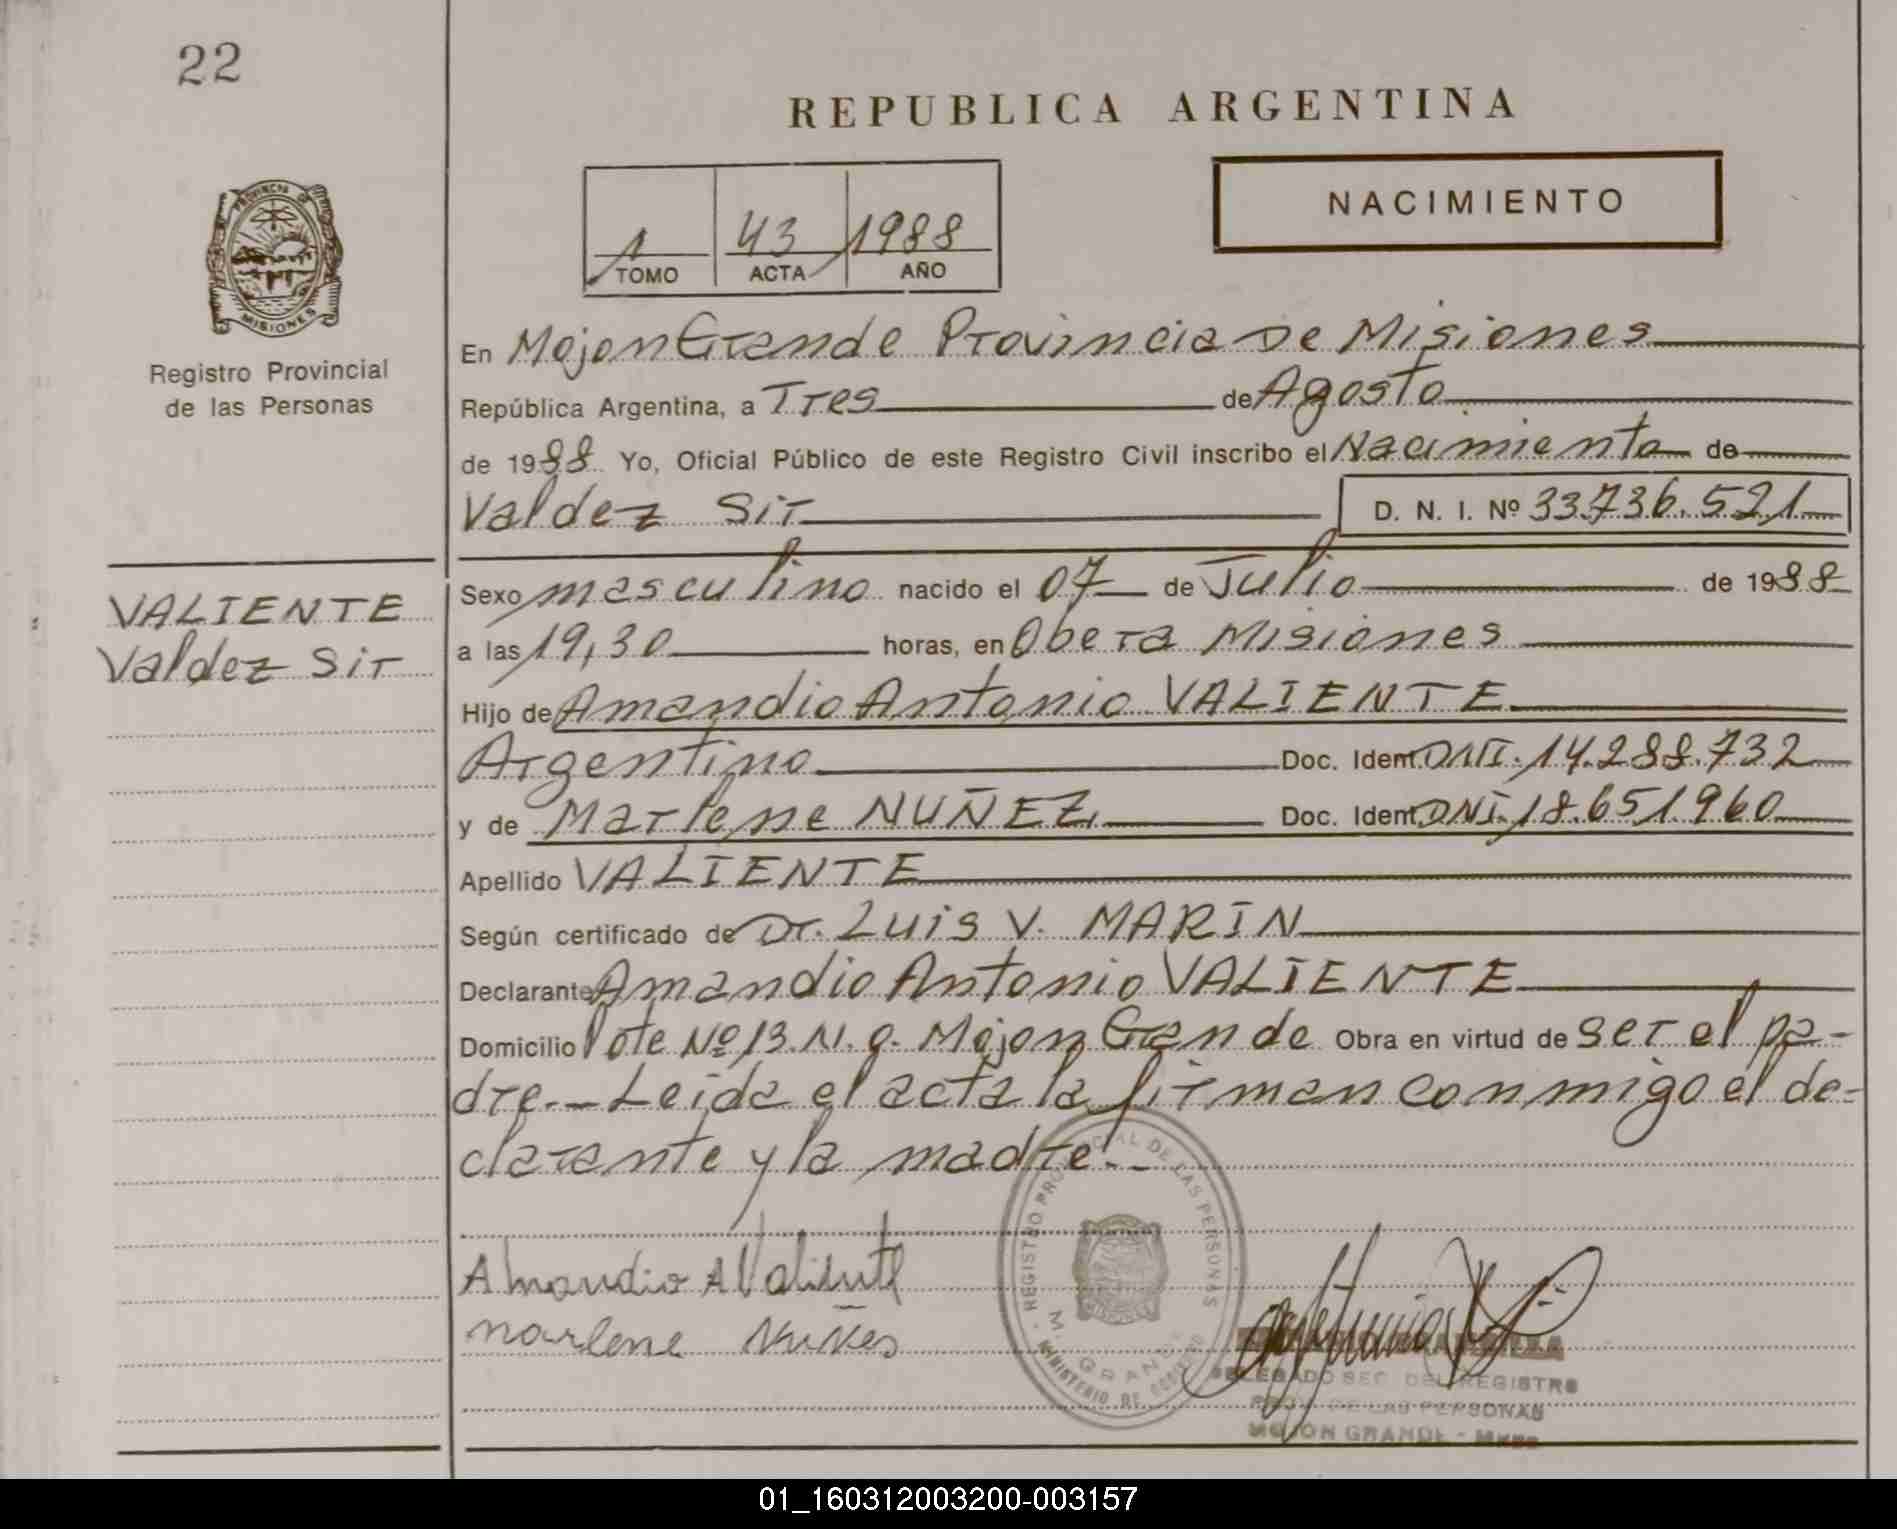 22
REPUBLICA ARGENTINA
PROVINCIA DE
MISIONES
Registro Provincial
de las Personas
1 43 1988
TOMO ACTA AÑO
NACIMIENTO
En Mojon Grande Provincia De Misiones
República Argentina, a Tres de Agosto
de 1988 Yo, Oficial Público de este Registro Civil inscribo el Nacimiento de
Valdez Sir D. N. I. Nº 33.736.521
VALIENTE
Valdez Sir
Sexo masculino nacido el 07 de Julio de 1988
a las 19,30 horas, en Obera Misiones
Hijo de Amandio Antonio VALIENTE
Argentino Doc. Ident. DNI. 14.288.732
y de Marlene NUÑEZ Doc. Ident. DNI. 18.651.960
Apellido VALIENTE
Según certificado de Dr. Luis V. MARIN
Declarante Amandio Antonio VALIENTE
Domicilio lote Nº 13. N. a. Mojon Grande Obra en virtud de ser el pa-
dre.-- Leida el acta la firman conmigo el de-
clarante y la madre.--
Amandio A Valiente
Marlene Nuñes
REGISTRO PROVINCIAL DE LAS PERSONAS
M. GRANDE
MINISTERIO DE GOBIERNO
DELEGADO SEC. DEL REGISTRO
PROV. DE LAS PERSONAS
MOJON GRANDE - Mnes
01_160312003200-003157